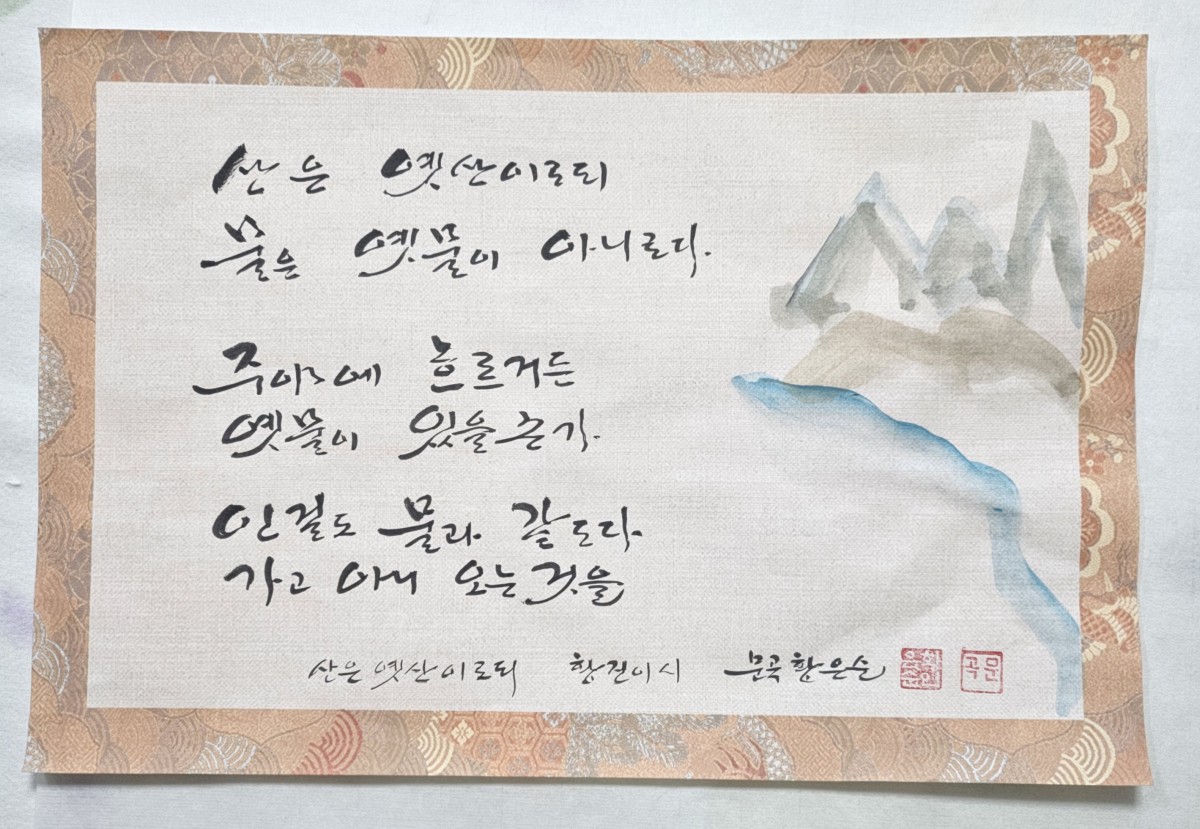 산은 옛산이로되
물은 옛물이 아니로다.
주야에 흐르거든
옛물이 있을손가.
인걸도 물과 같도다.
가고 아니 오는것을
산은 옛산이로되 황진이시 문곡 황은순
문곡